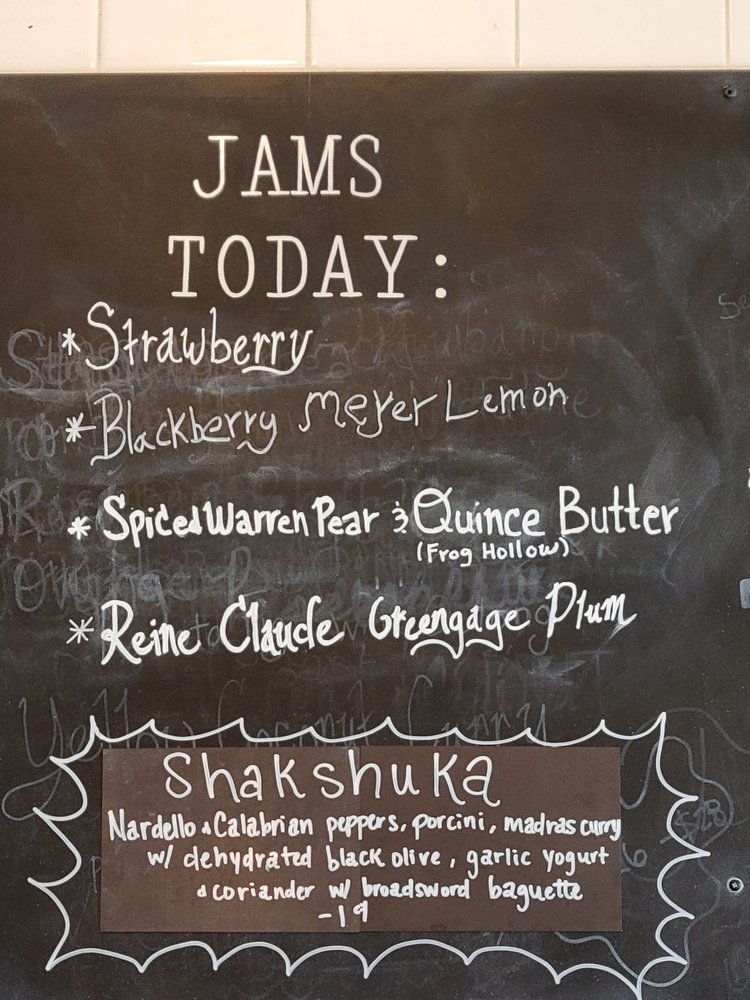 JAMS
TODAY:
* Strawberry
* Blackberry Meyer Lemon
* Spiced Warren Pear & Quince Butter
(Frog Hollow)
* Reine Claude Greengage Plum
Yellow Coconut Curry
Shakshuka
Nardello & Calabrian peppers, porcini, madras curry
w/ dehydrated black olive, garlic yogurt
& coriander w/ broadsword baguette
-19
$28